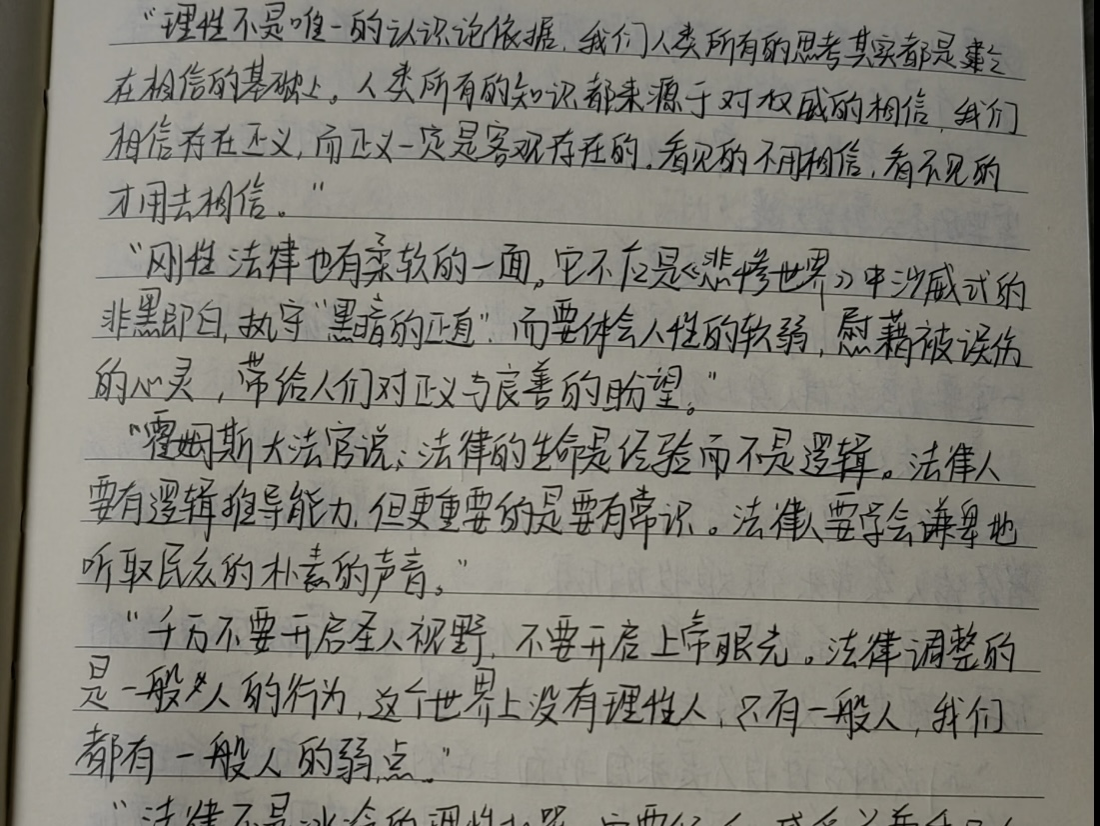 “理性不是唯一的认识论依据，我们人类所有的思考其实都是建立
在相信的基础上。人类所有的知识都来源于对权威的相信，我们
相信存在正义，而正义一定是客观存在的。看见的不用相信，看不见的
才用去相信。”
“刚性法律也有柔软的一面。它不应是《悲惨世界》中沙威式的
非黑即白，执守“黑暗的正直”，而要体会人性的软弱，慰藉被误伤
的心灵，带给人们对正义与良善的盼望。”
“霍姆斯大法官说：法律的生命是经验而不是逻辑。法律人
要有逻辑推导能力，但更重要的是要有常识。法律人要学会谦卑地
听取民众的朴素的声音。”
“千万不要开启圣人视野，不要开启上帝眼光。法律调整的
是一般人的行为，这个世界上没有理性人，只有一般人，我们
都有一般人的弱点。”
“法律不是冰冷的理性